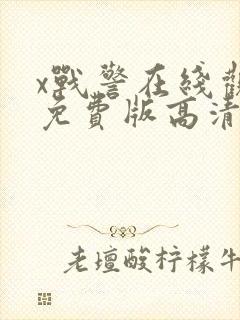 x戰警在綫觀
免費版高清
老壇酸柠檬牛